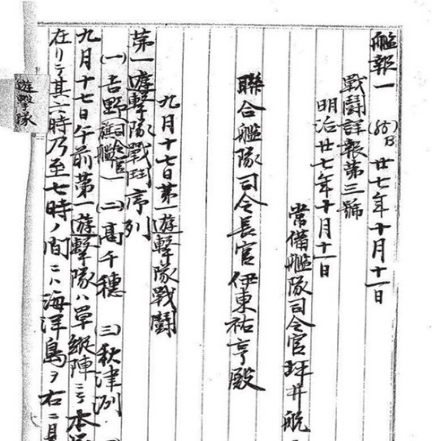 艦報一 B 廿七年十月十一日
戰闘詳報第三號
明治廿七年十月十一日
常備艦隊司令官坪井航
聯合艦隊司令長官伊東祐亨殿
九月十七日第一遊撃隊戰闘
第一遊撃隊戰斗序列
(一)吉野 司令官旗艦 (二)高千穂 (三)秋津洲
九月十七日午前第一遊撃隊ハ單縦陣ニテ本
在リテ其六時乃至七時ノ間ニハ海洋島ヲ右ニ
遊撃隊